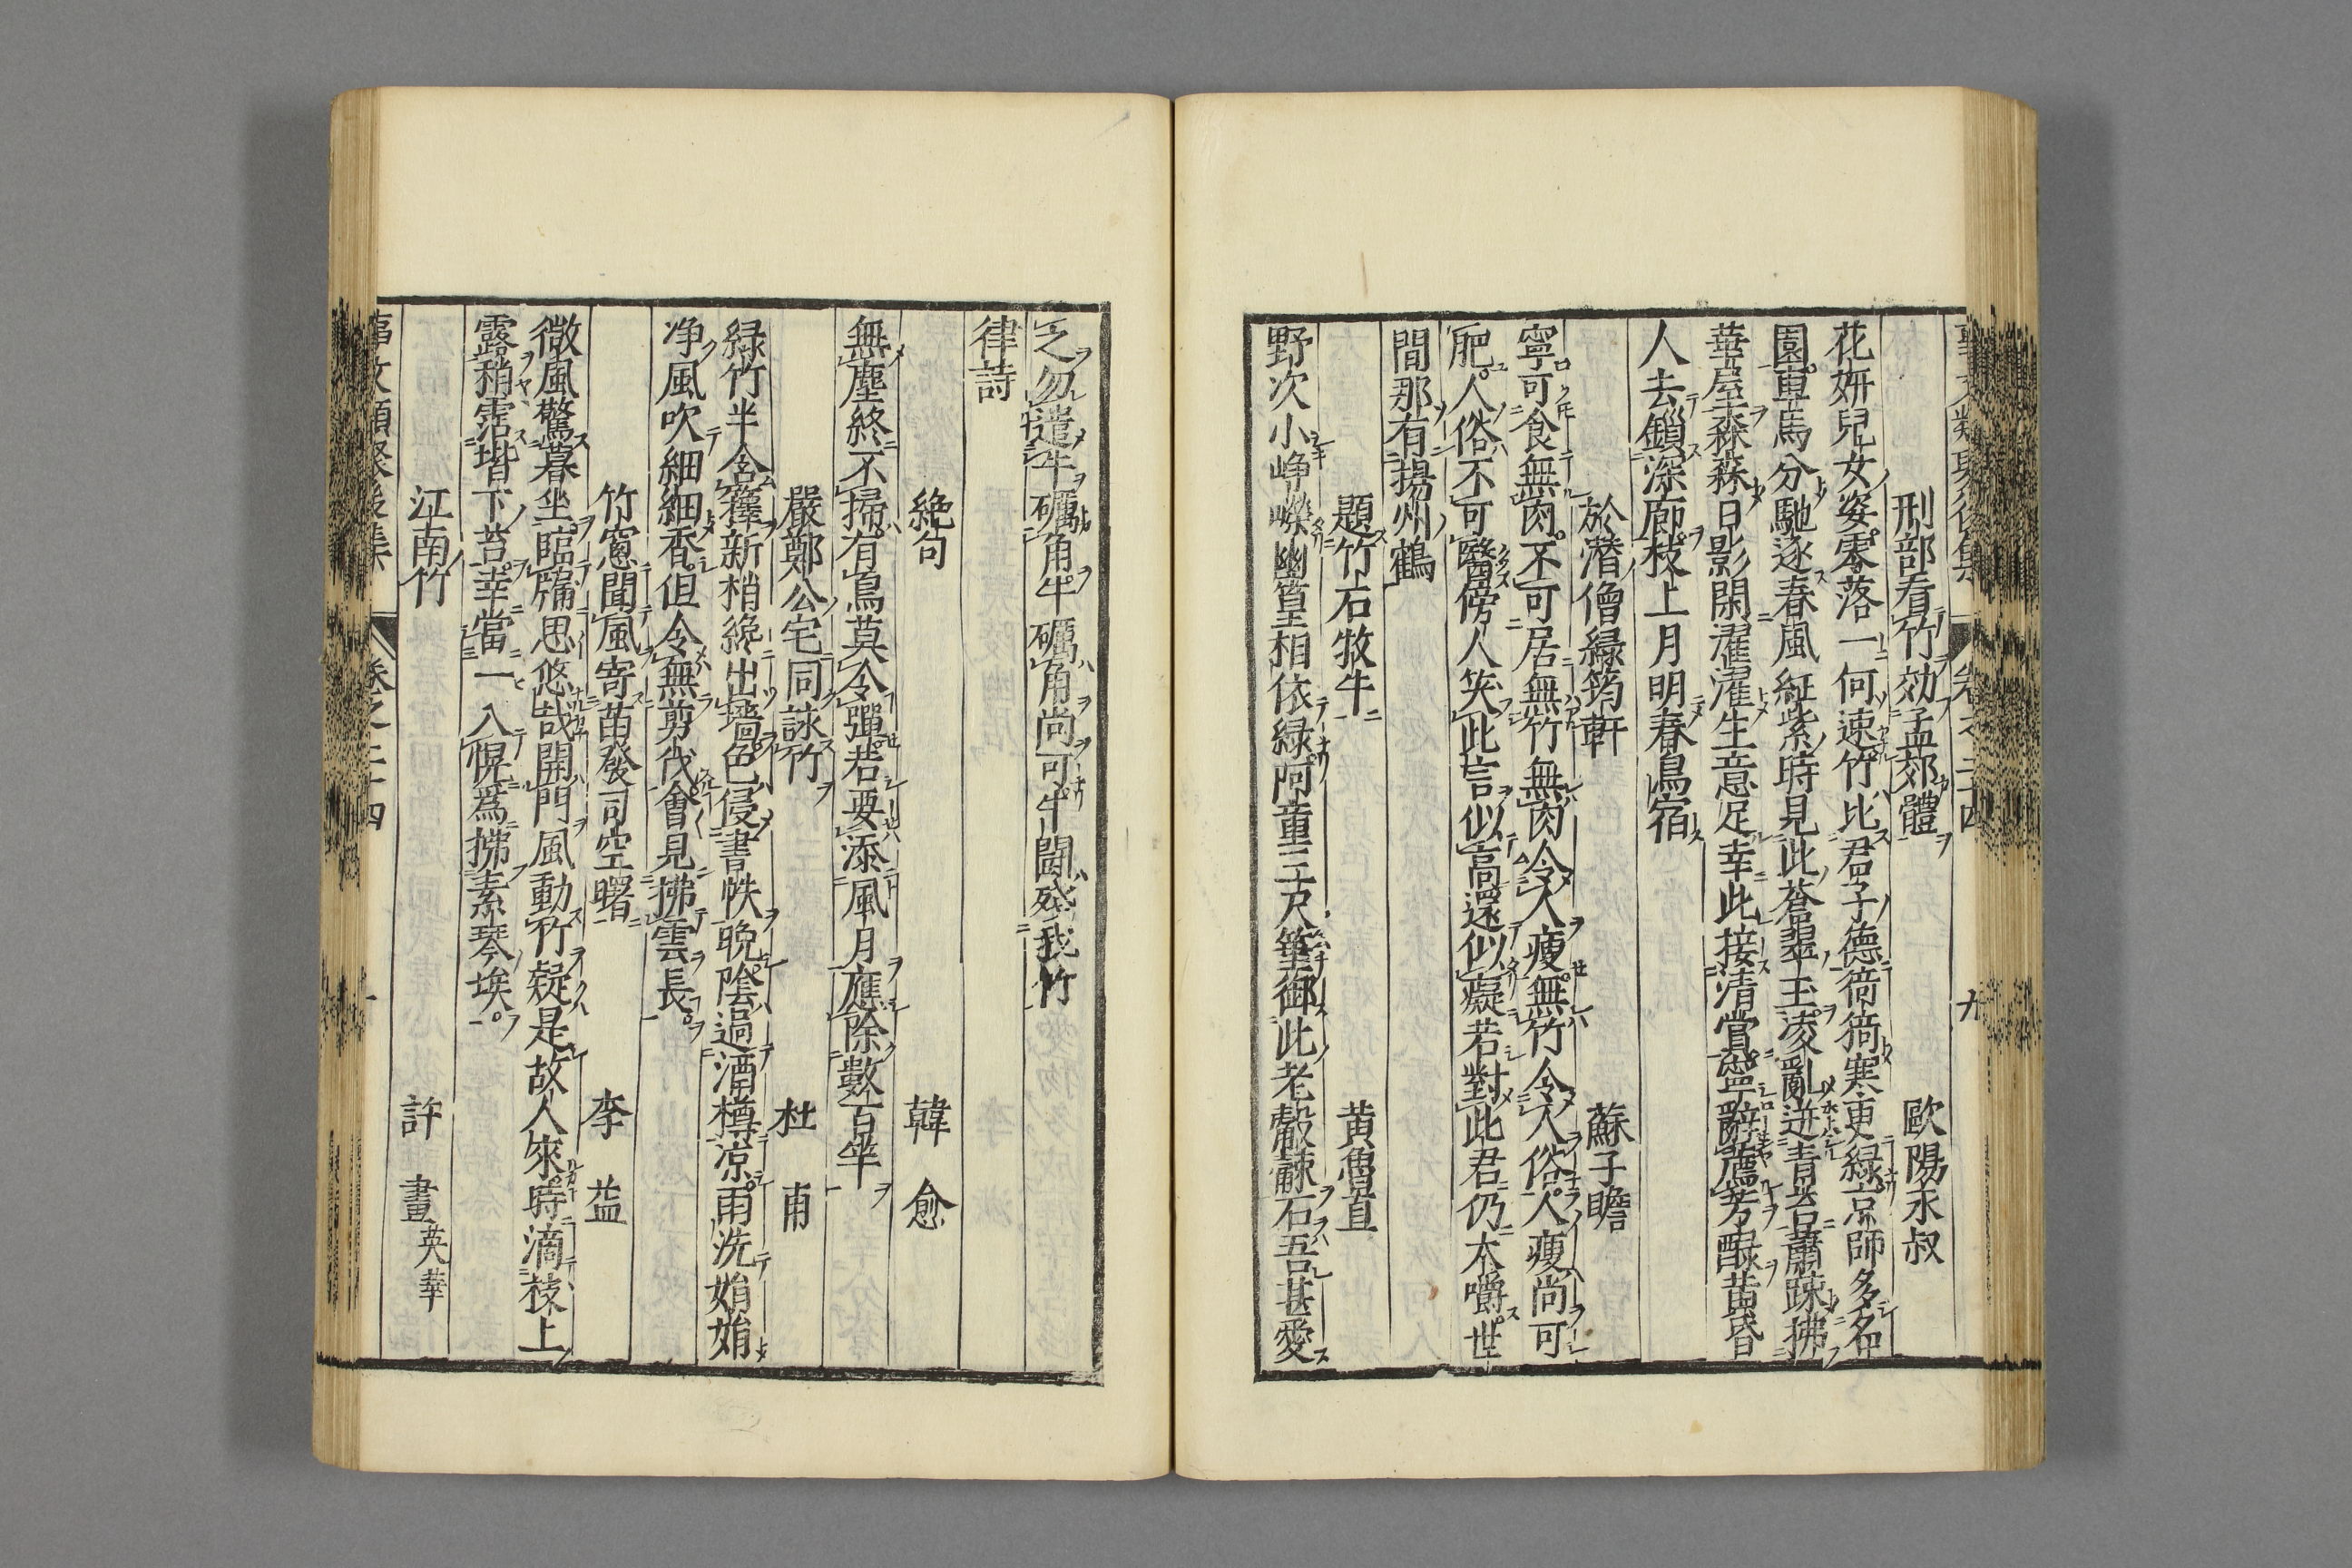 事文類聚後集 卷之二十四 九
刑部看竹効孟郊體 歐陽永叔
花妍兒女姿零落一何速竹比君子德猗猗寒更綠京師多名
園車馬分馳逐春風紅紫時見此蒼翠玉凌亂迸青苔蕭踈拂
華屋森森日影閑濯濯生意足幸此接清賞寧辭薦芳醁黄昏
人去鎻深廊枝上月明春鳥宿
於潜僧綠筠軒 蘇子瞻
寧可食無肉不可居無竹無肉令人瘦無竹令人俗人瘦尚可
肥人俗不可醫傍人笑此言似高還似癡若對此君仍大嚼世
間那有揚州鶴
題竹石牧牛 黄魯直
野次小崢嶸幽篁相依綠阿童三尺箠御此老觳觫石吾甚愛
之勿遣牛礪角牛礪角尚可牛鬪殘我竹
律詩
絶句 韓愈
無塵終不掃有鳥莫令彈若要添風月應除數百竿
嚴鄭公宅同詠竹 杜甫
綠竹半含籜新梢纔出墻色侵書帙晩陰過酒樽凉雨洗娟娟
净風吹細細香但令無剪伐會見拂雲長
竹窻聞風寄苗發司空曙 李益
微風驚暮坐臨牖思悠哉開門風動竹疑是故人來時滴枝上
露稍霑堦下苔幸當一入幌爲拂素琴埃
江南竹 許畫英華
事文類聚後集 卷之二十四